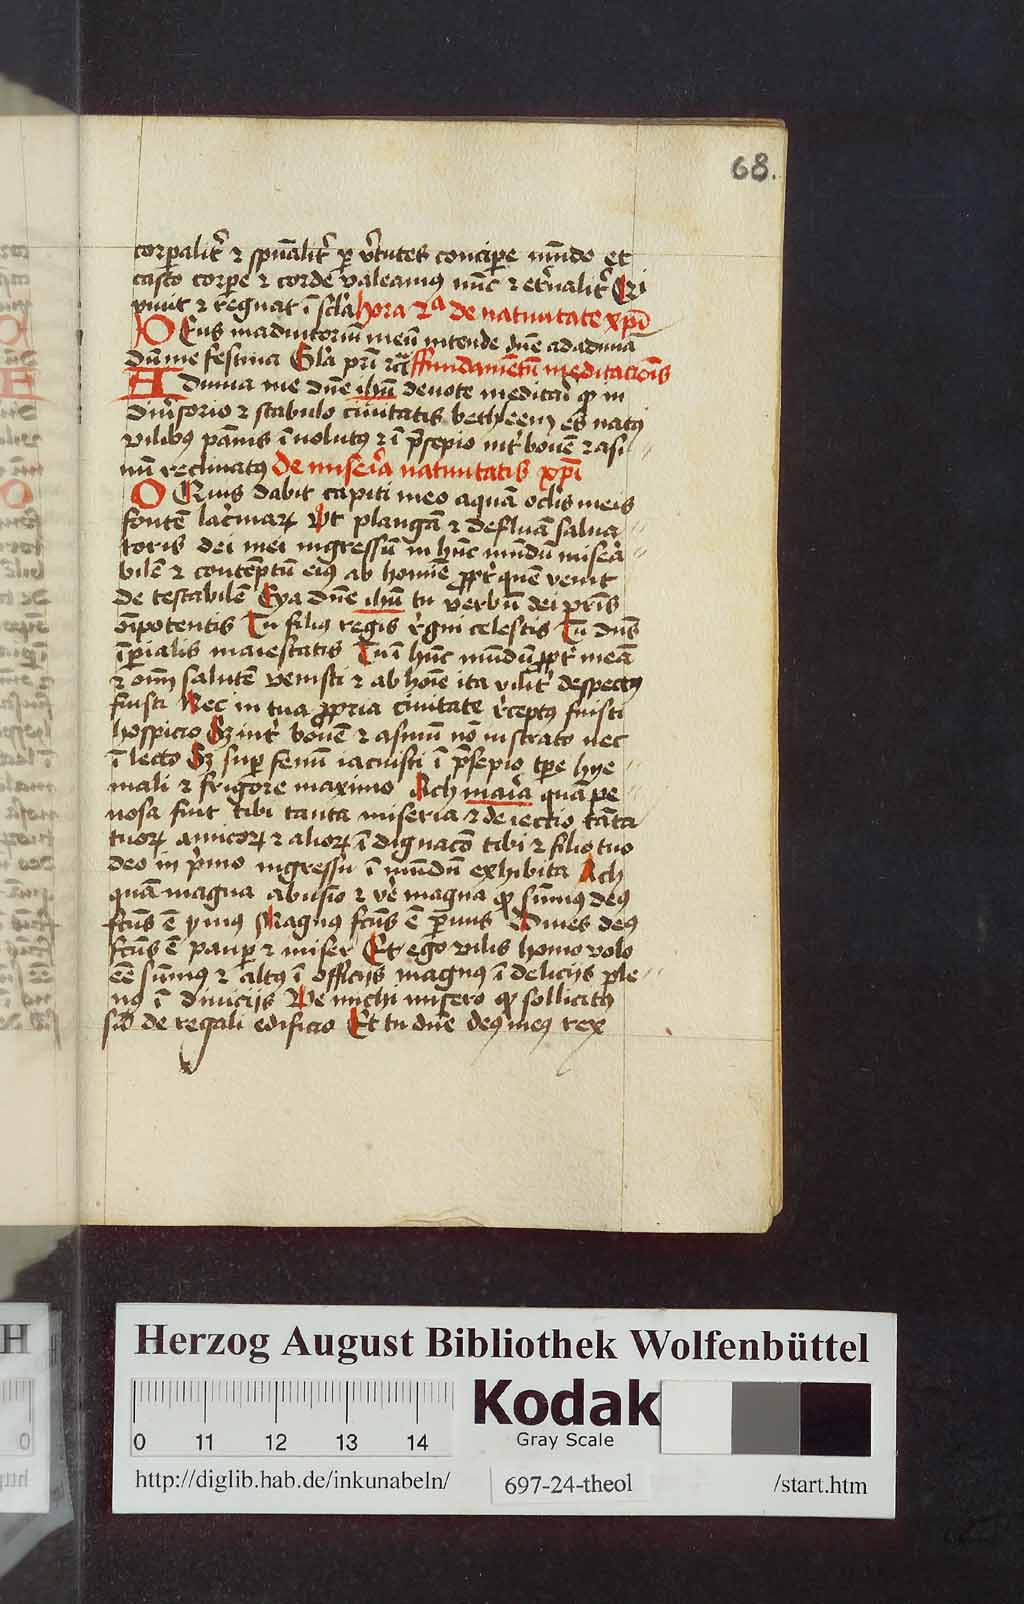 68.
corꝑalit᷑ ⁊ spūalit᷑ ꝑ v᷑tutes concipe mūdo et
casto corꝑe ⁊ corde valeamus nūc ⁊ et᷑nalit᷑ Qui
viuit ⁊ regnat ī scl̄a Hora 2ᵃ de natiuitate xp̄i
DEus in adiutoriū meū intende dn̄e ad adiuuā
dū me festina Gl̄a pr̄i ffundamētū meditacōis
Adiuua me dn̄e ih̄u deuote meditari ꝙ in
diu᷑sorio ⁊ stabulo ciuitatis bethleem es natꝰ
vilibꝰ pānis īuolutꝰ ⁊ ī p̄sepio int᷑ bouē ⁊ asi
nū reclinatꝰ de miseria natiuitatis xp̄i
O Quis dabit capiti meo aquā oclis meis
fontē lac᷑maꝝ Vt plangā ⁊ defluā salua
toris dei mei ingressū in hūc mūdū miserā
bilē ⁊ contēptū eiꝰ ab homīe ꝓpt᷑ quē venit
de testabilē Eya dn̄e ih̄u tu verbū dei pr̄is
oīpotentis Tu filiꝰ regis r᷑gni celestis Tu dn̄s
īꝑialis maiestatis Tu ī hūc mūdū ꝓpt᷑ meā
⁊ oīm salutē venisti ⁊ ab hoīe ita vilit᷑ despectꝰ
fuisti Nec in tua ꝓpria ciuitate r᷑ceptꝰ fuisti
hospicio Sꝫ int᷑ bouē ⁊ asinū nō in strato nec
ī lecto Sꝫ suꝑ fenū iacuisti ī p̄sepio tꝑe hye
mali ⁊ frigore maximo Ach maria quā pe
nosa fuit tibi tanta miseria ⁊ deiectio tāta
tuoꝝ amicoꝝ ⁊ alioꝝ ī dignacō tibi ⁊ filio tuo
deo in p᷑mo ingressu ī mūdū exhibita Ach
quā magna abusio ⁊ ve magna ꝙ sūmus deꝰ
fc̄us ē ymus Magnꝰ fc̄us ē paruus Diues deꝰ
fc̄us ē pauꝑ ⁊ miser Et ego vilis homo volo
eē sūmꝰ ⁊ altꝰ ī officijs magnꝰ ī delicijs ple
nꝰ ī diuicijs Ve michi misero ꝙ sollicitꝰ
sū de regali edificio Et tu dn̄e deꝰ meꝰ rex
Herzog August Bibliothek Wolfenbüttel
0 11 12 13 14
Kodak
Gray Scale
http://diglib.hab.de/inkunabeln/ 697-24-theol /start.htm